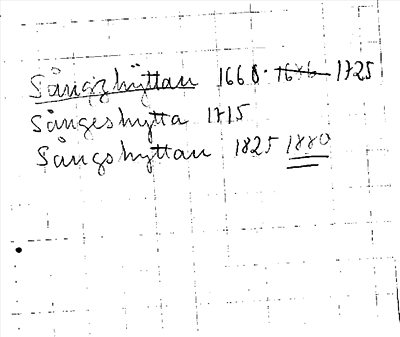 Sångzhÿttan 1668. 1686 1725
Sångeshytta 1715
Sångshyttan 1825 1880